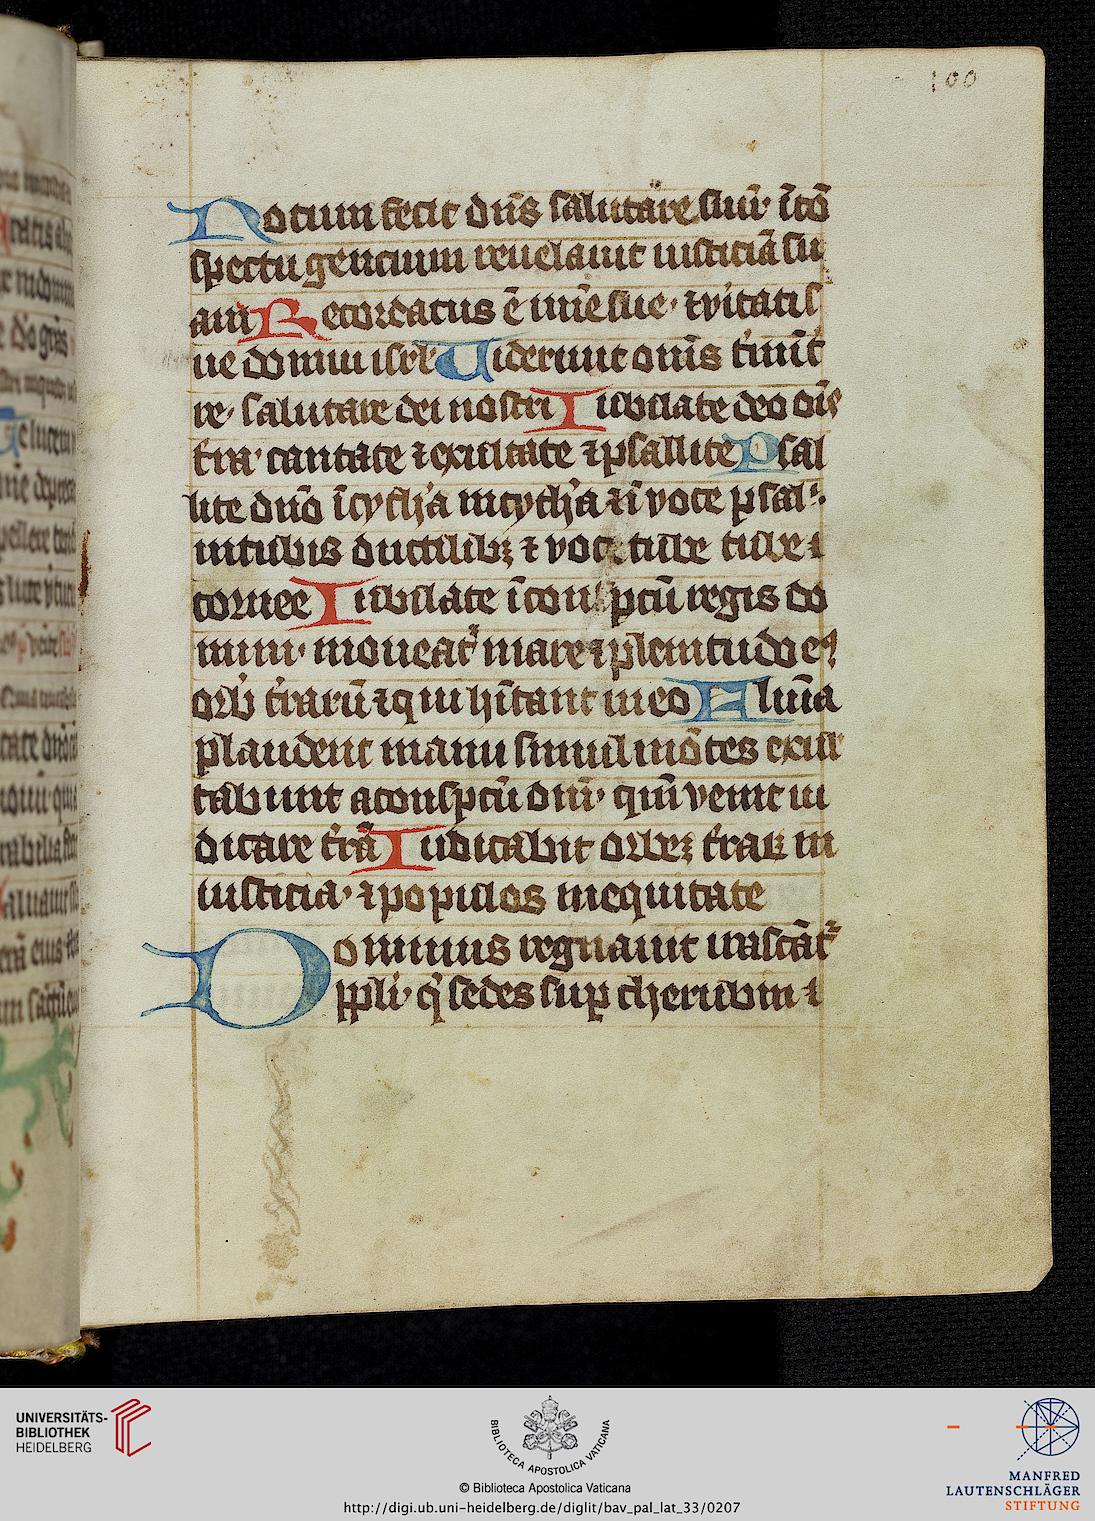 100
Notum fecit dn̄s salutare suū· īcō
spectu gentium reuelauit iusticiā su
am Recordatus ē mīe sue· ⁊ v̓itatis
ue domui isrl̓ Uiderunt om̄s t̓mīt
re· salutare dei nostri Iubilate deo oīs
t̓ra· cantate ⁊ exultate ⁊ psallite Psal
lite dn̄o ī cyth̓a in cyth̓a ⁊ ī voce psal·
in tubis ductilibꝫ ⁊ voce tube tube ⁊
cornee Iubilate ī conspc̄tū regis do
mini· moueat᷑ mare ⁊ plenitudo eꝰ
orb̓ t̓rarū ⁊ qui hītant in eo Flumīa
plaudent manu simul mōtes exul
tabunt a conspc̄tū dn̄i· qm̄ venit iu
dicare t̓rā Iudicabit orbeꝫ t̓raꝝ in
iusticia· ⁊ populos in equitate
Dominus regnauit irascāt᷑
ppl̓i· q̓ sedes suꝑ cherubin ⁊
UNIVERSITÄTS-
BIBLIOTHEK
HEIDELBERG
BIBLIOTECA APOSTOLICA VATICANA
© Biblioteca Apostolica Vaticana
http://digi.ub.uni-heidelberg.de/diglit/bav_pal_lat_33/0207
MANFRED
LAUTENSCHLÄGER
STIFTUNG